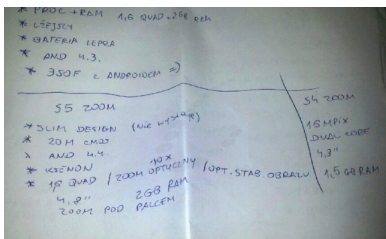 * PROC + RAM 1,6 QUAD + 2GB RAM
* LŻEJSZY
* BATERIA LEPSZA
* AND 4.3.
* 350F z ANDROIDEM =)
S5 ZOOM
* SLIM DESIGN (Nie wystaje)
* 20 M CMOS
* AND 4.4
* KSENON
* 1,6 QUAD / 10x ZOOM OPTYCZNY / OPT. STAB. OBRAZU
4.8" 2GB RAM
ZOOM POD PALCEM
S4 ZOOM
16 MPIX
DUAL CORE
4,3"
1,5 GB RAM